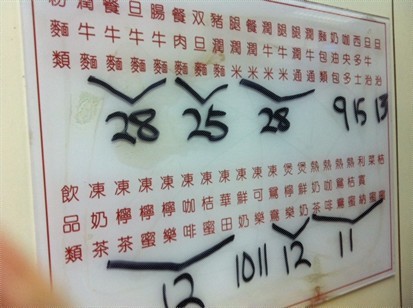 粉麵類
潤牛麵
餐牛麵
旦牛麵
腸牛麵
餐肉麵
双旦麵
豬潤麵
腿潤米
餐潤米
潤牛米
腿牛米
腿潤通
潤牛通
麵包類
奶油包
咖央多
西多士
旦牛治
旦治
28
25
28
9
15
13
飲品類
凍奶茶
凍檸茶
凍檸蜜
凍檸樂
凍咖啡
凍桔蜜
凍華田
凍鮮奶
凍可樂
凍鴛鴦
煲檸樂
煲鮮奶
熱奶茶
熱咖啡
熱鴛鴦
熱蜜
利賓納
菜蜜
桔蜜
12
10
11
12
11